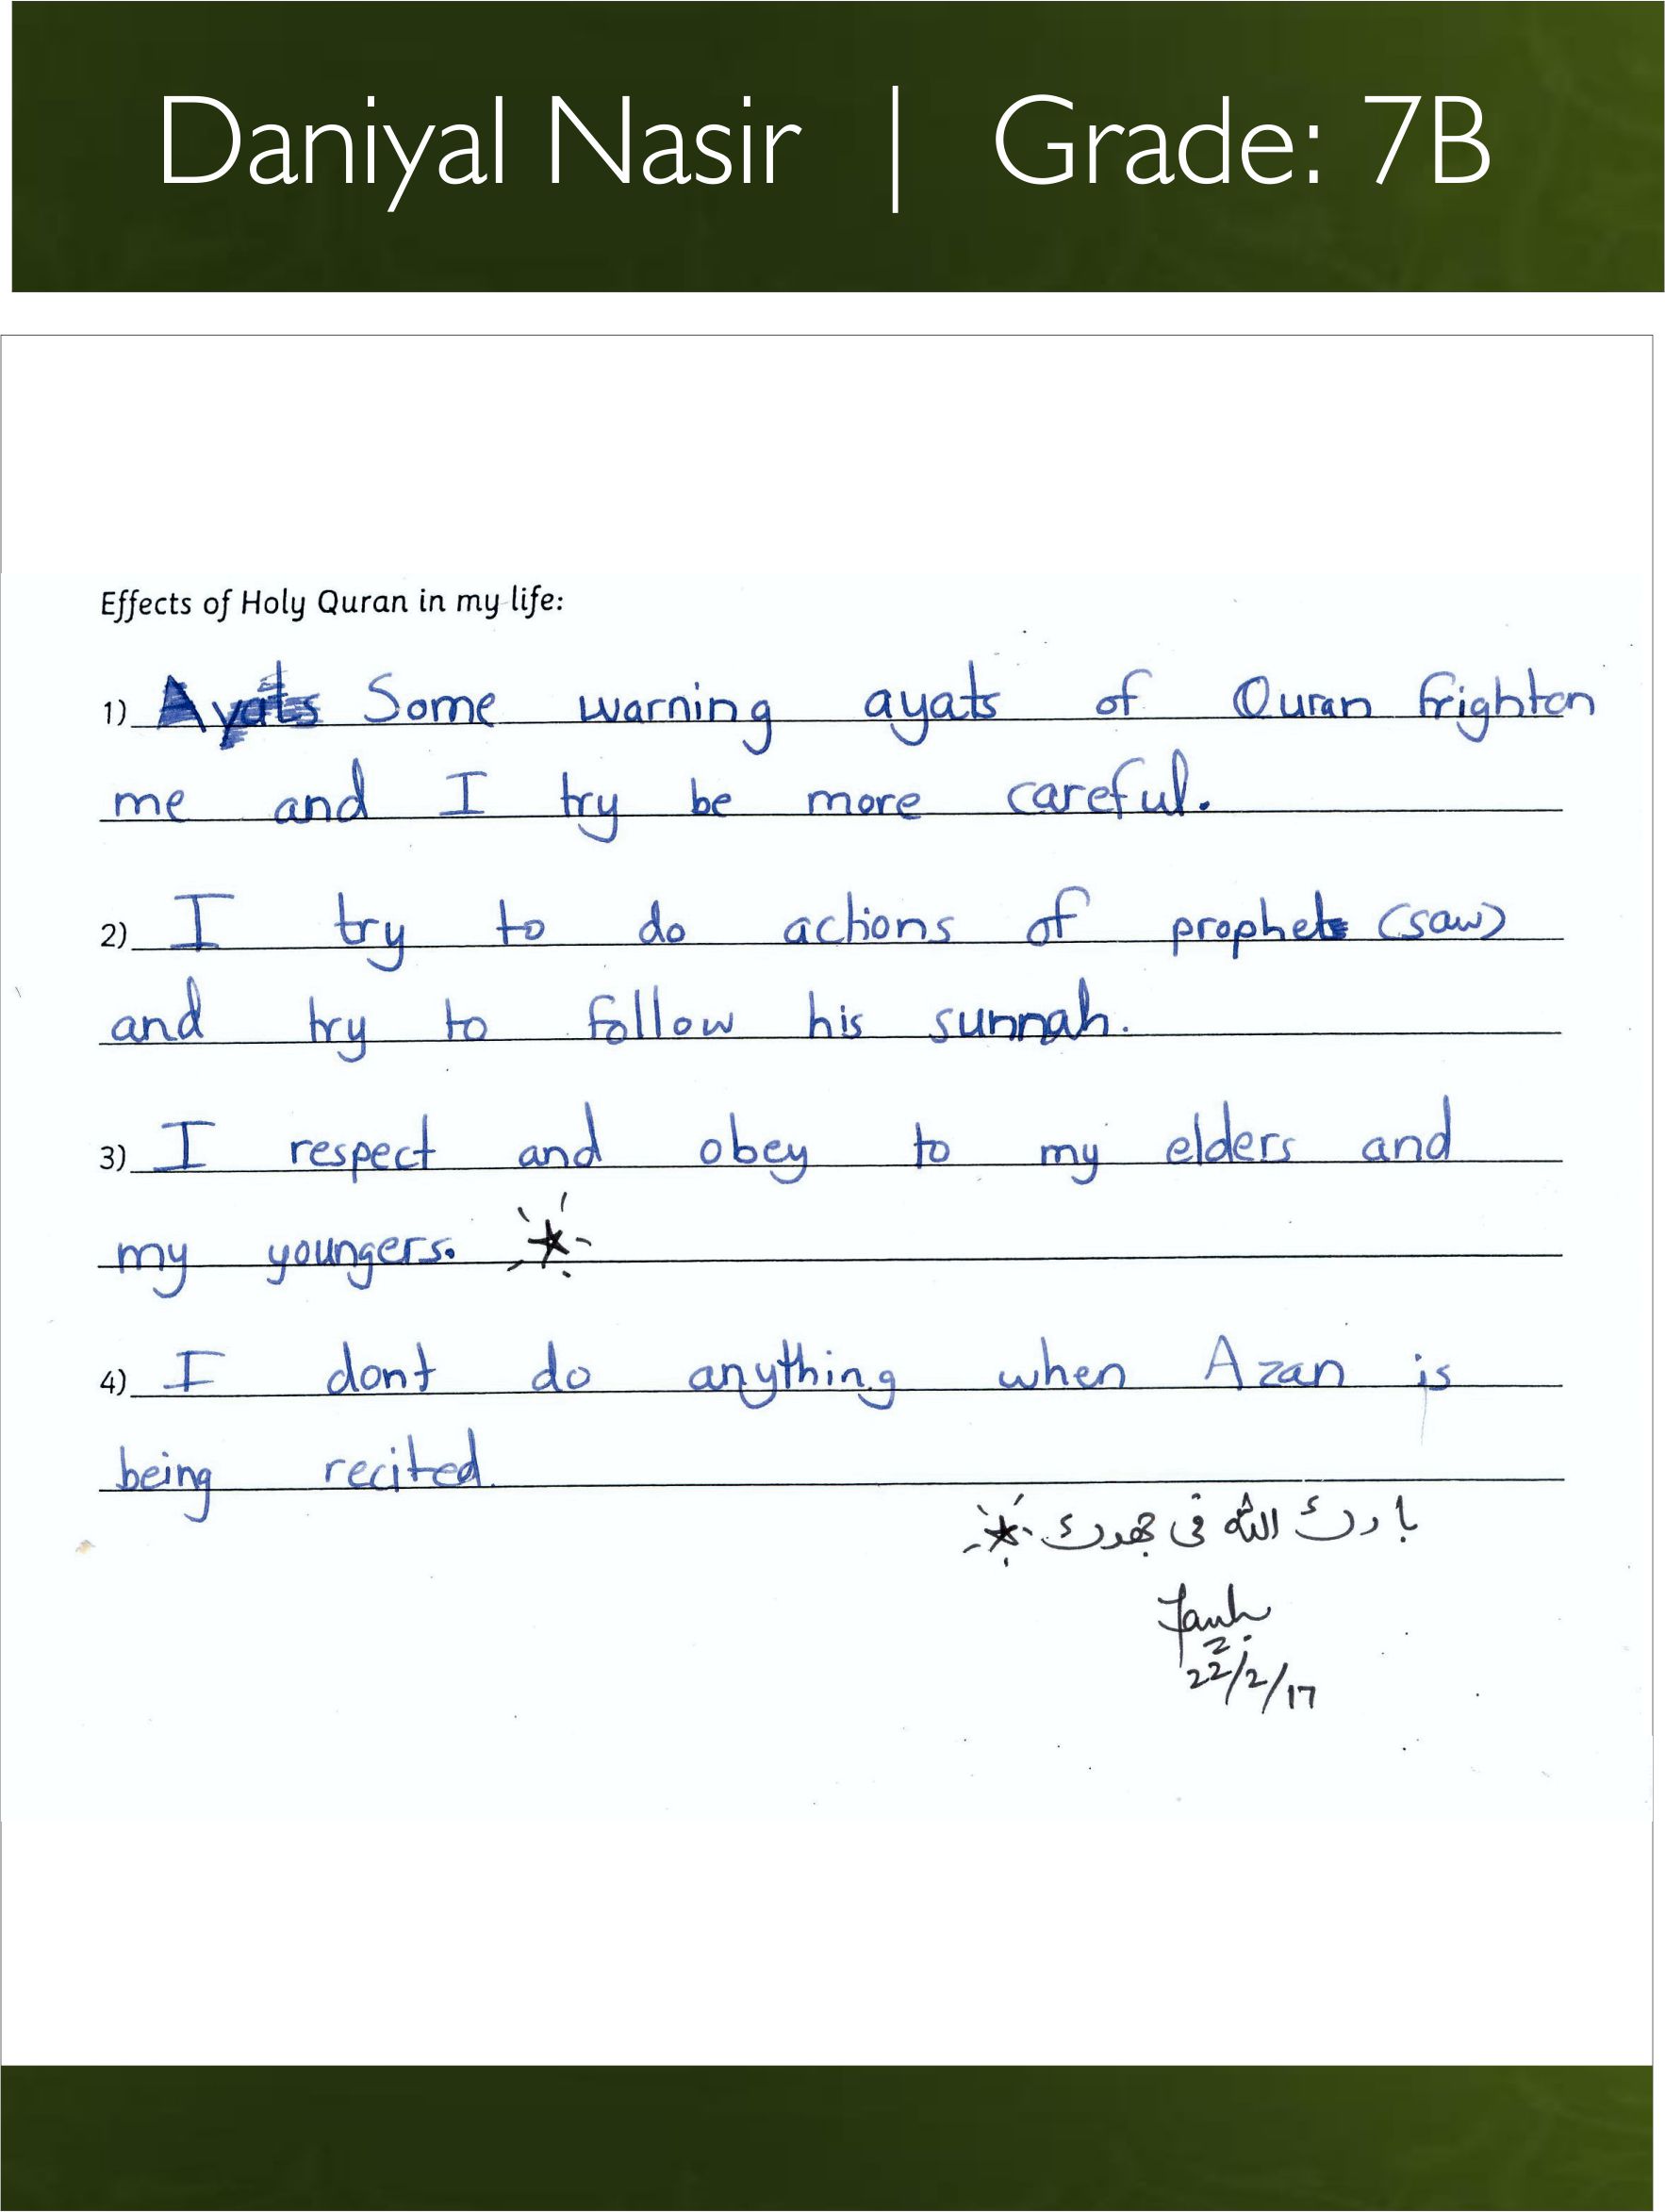 Daniyal Nasir | Grade: 7B
Effects of Holy Quran in my life:
1) Ayats Some warning ayats of Quran frighten
me and I try be more careful.
2) I try to do actions of prophet (saw)
and try to follow his sunnah.
3) I respect and obey to my elders and
my youngers.
4) I dont do anything when Azan is
being recited.
بارك الله فى جهدك
22/2/17